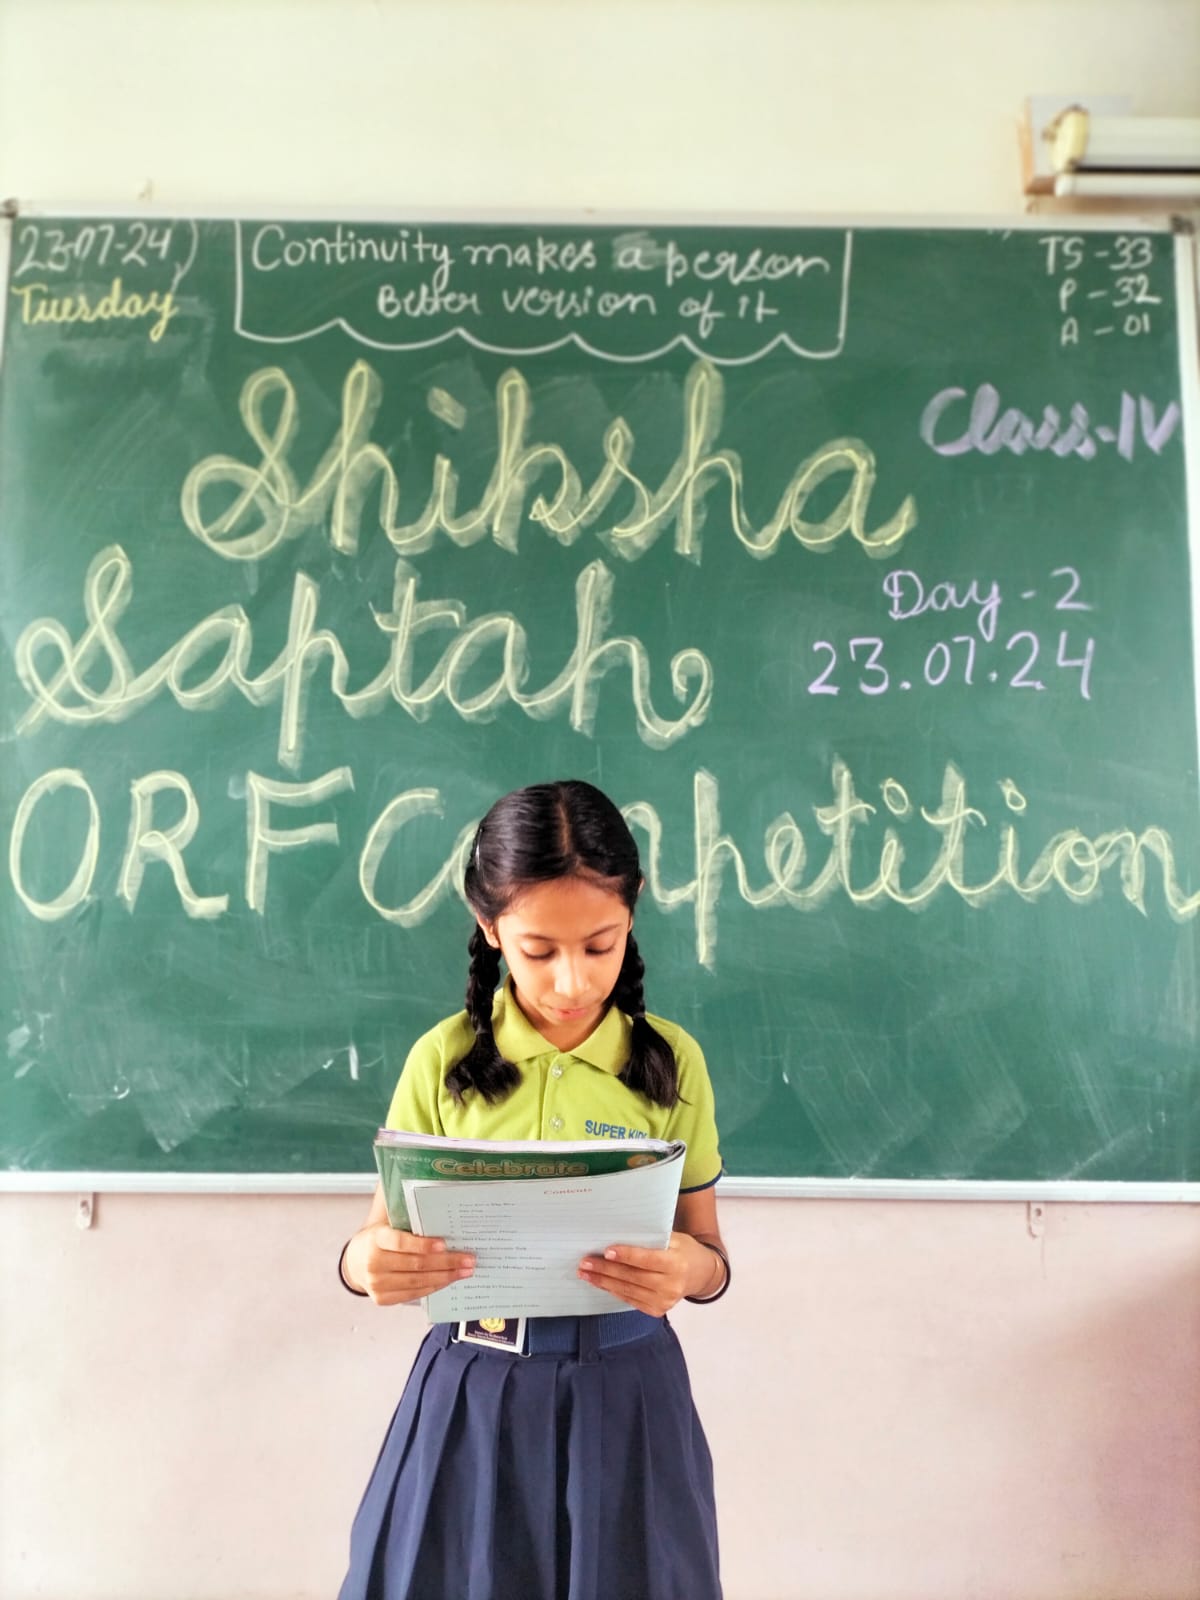 23-07-24
Tuesday
Continuity makes a person
Better version of it
TS - 33
P - 32
A - 01
Class-IV
Shiksha
Saptah
Day - 2
23.07.24
ORF Competition
SUPER KID
REVISED Celebrate
Contents